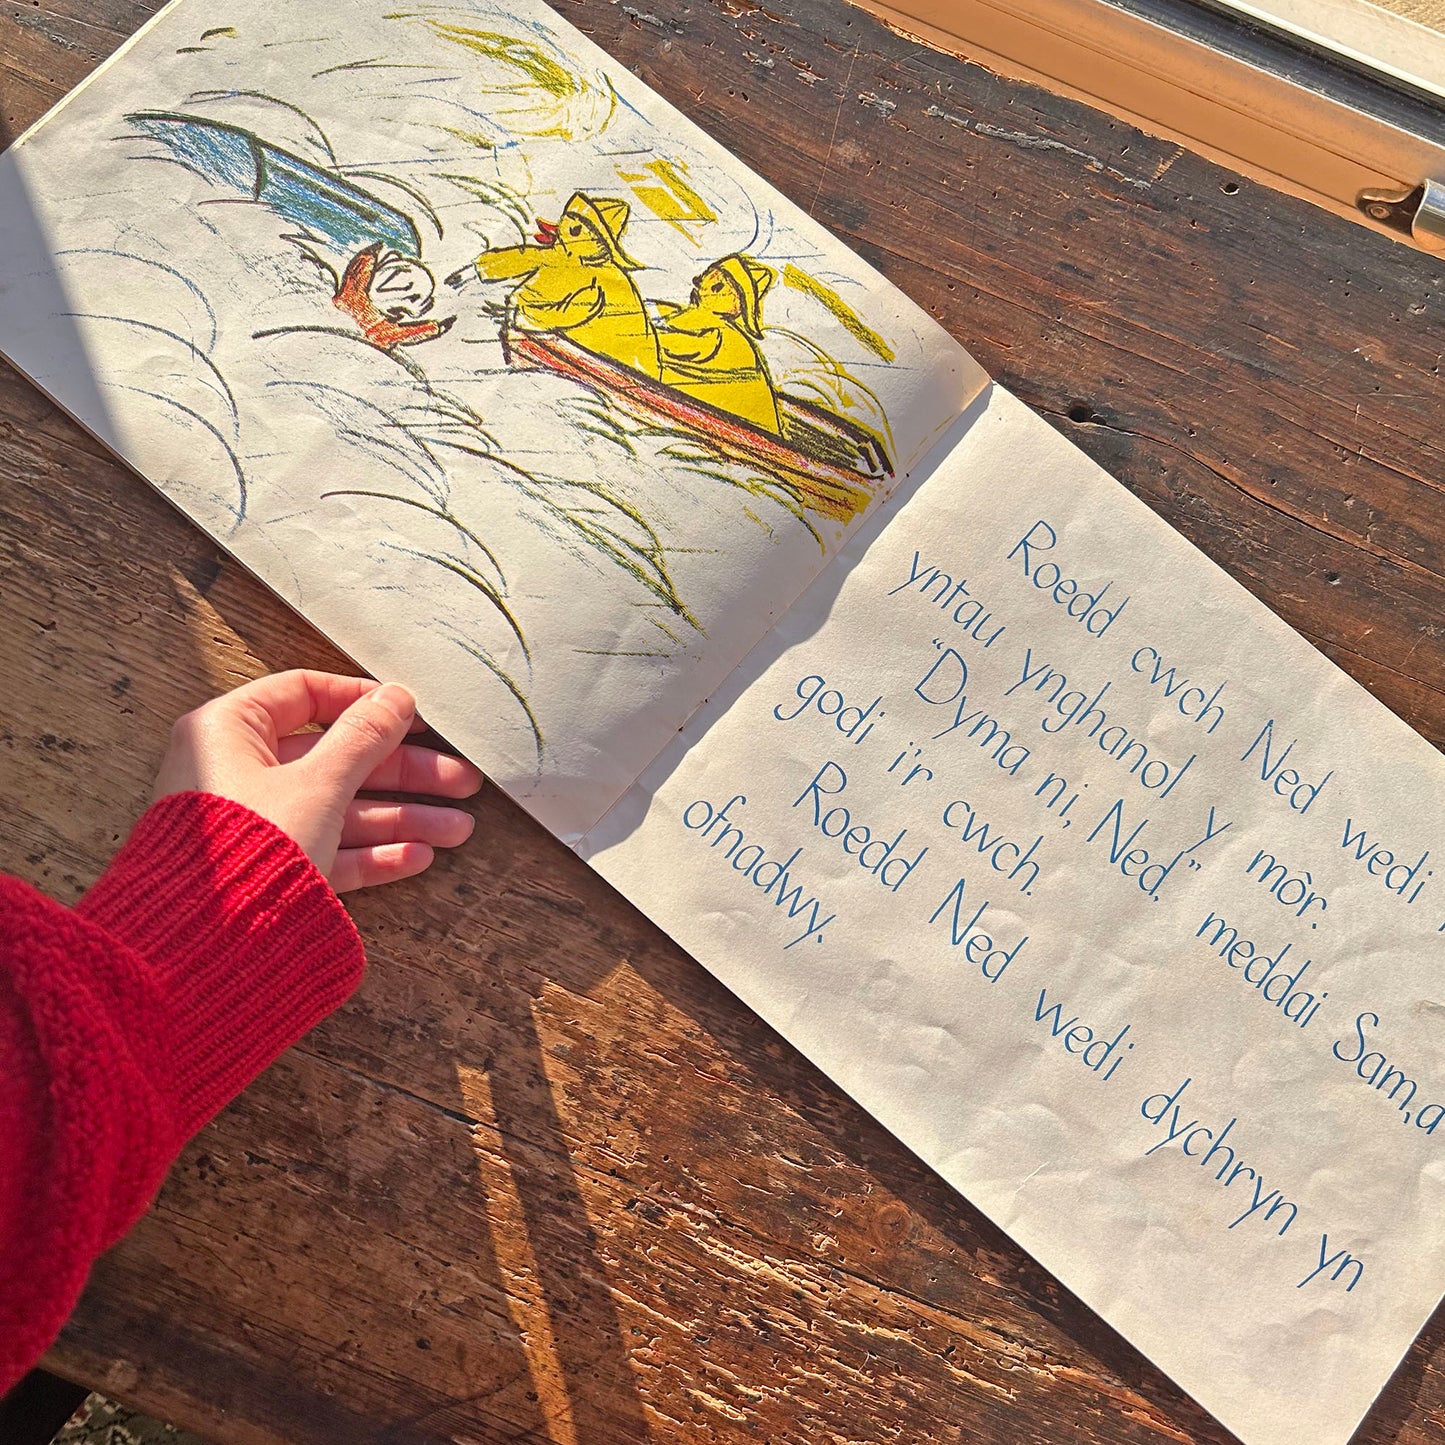 Roedd cwch Ned wedi
yntau ynghanol y môr.
“Dyma ni, Ned,” meddai Sam, a
godi i'r cwch.
Roedd Ned wedi dychryn yn
ofnadwy.